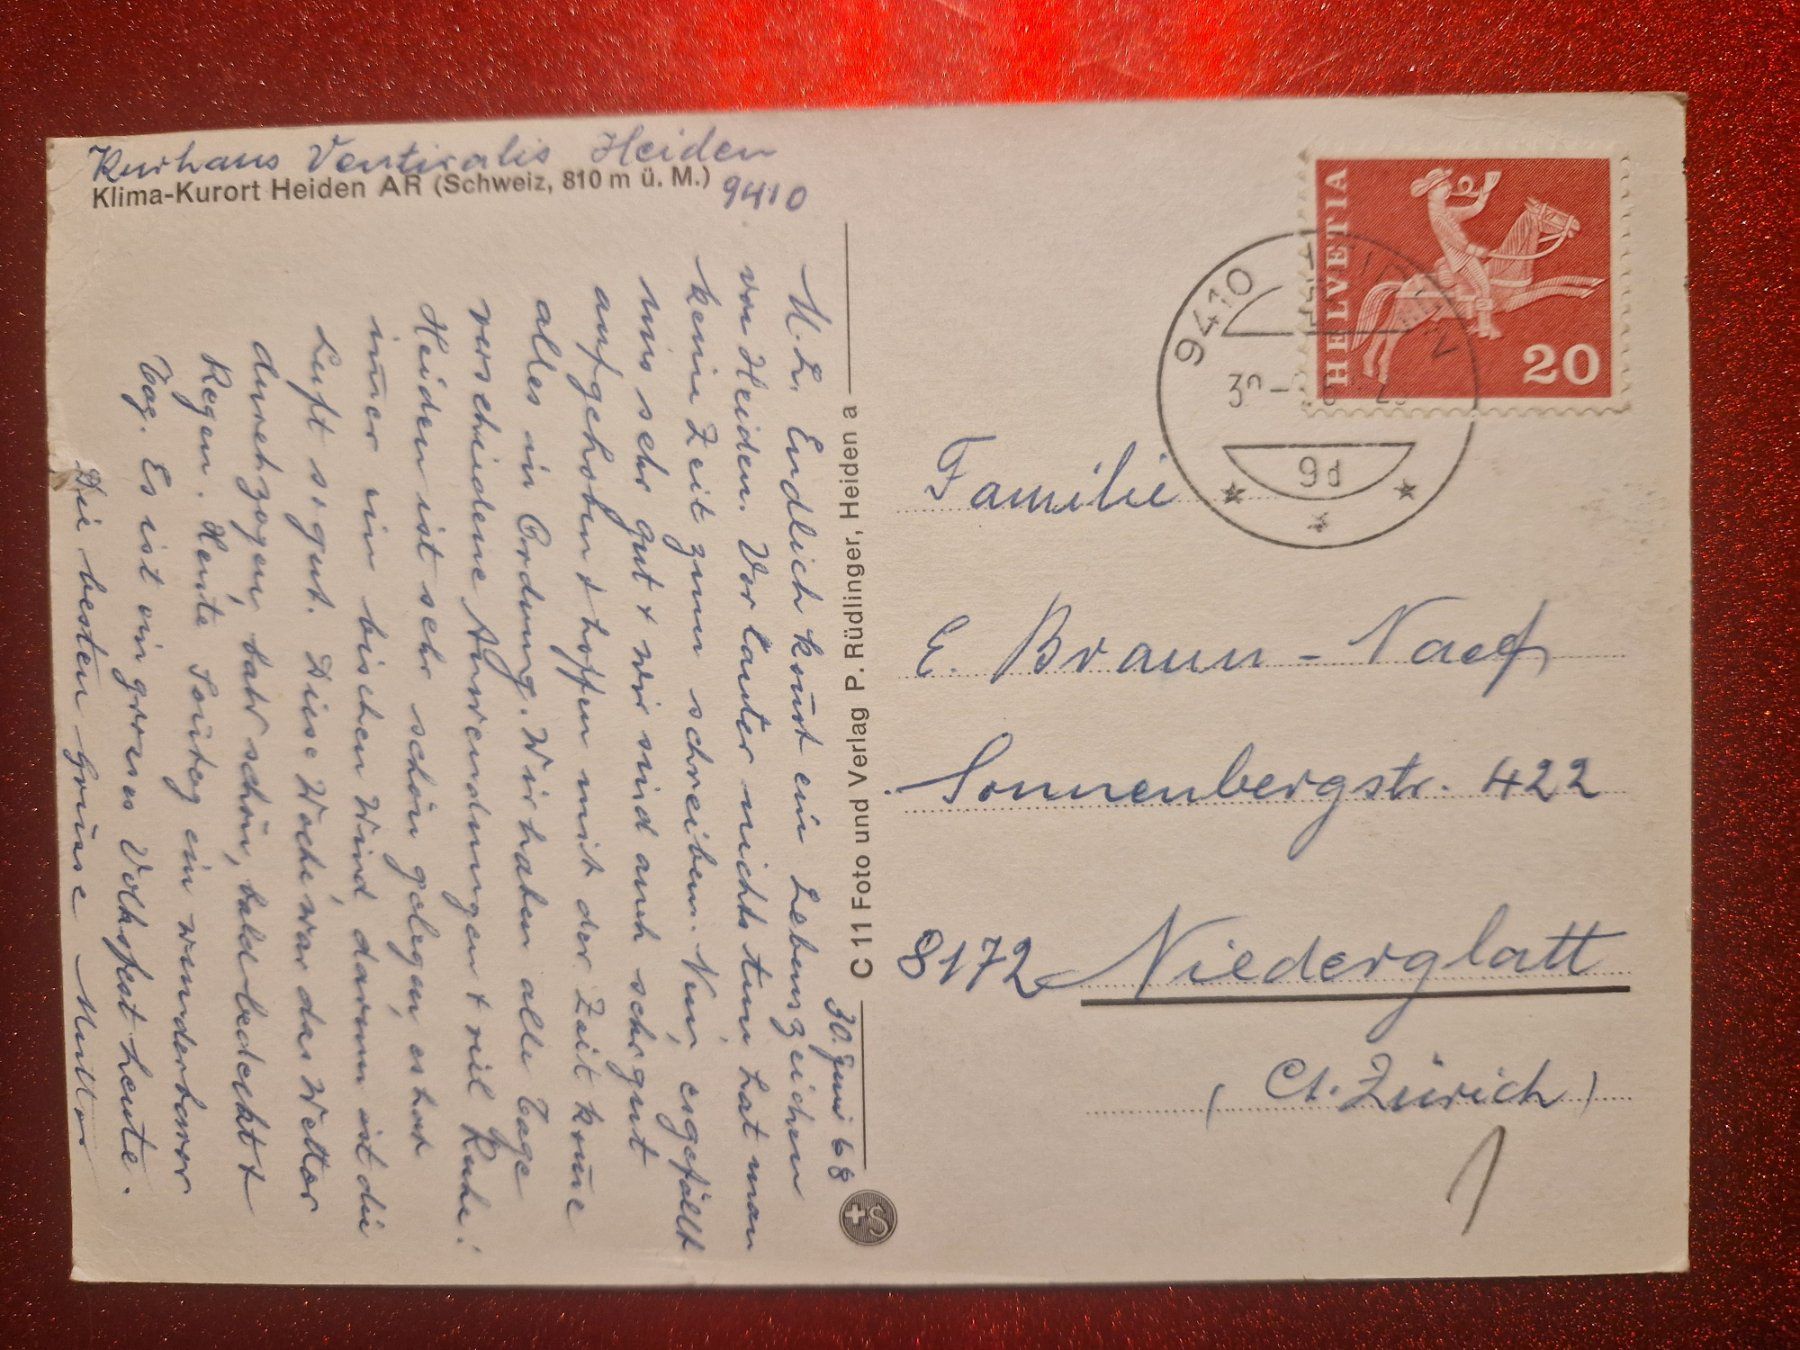 Kurhaus Ventiralis Heiden
Klima-Kurort Heiden AR (Schweiz, 810 m ü. M.)
9410
30. Juni 68
M. L. Endlich kom̄t ein Lebenszeichen
von Heiden. Vor lauter nichts tun hat man
keine Zeit zum schreiben. Nun, es gefällt
uns sehr gut + wir sind auch sehr gut
aufgehoben + hoffen mit der Zeit kom̄e
alles in Ordnung. Wir haben alle Tage
verschiedene Anwendungen + viel Ruhe!
Heiden ist sehr schön gelegen, es hat
im̄er ein bischen Wind darum ist die
Luft so gut. Diese Woche war das Wetter
durchzogen, bald schön, bald bedeckt +
Regen. Heute Son̄tag ein wunderbarer
Tag. Es ist ein grosses Volksfest heute.
Die besten Grüsse Mutter
C 11 Foto und Verlag P. Rüdlinger, Heiden a
HELVETIA
20
9410 HEIDEN
9d
Familie
E. Braun - Naef
Sonnenbergstr. 422
8172 Niederglatt
(Ct. Zürich)
1